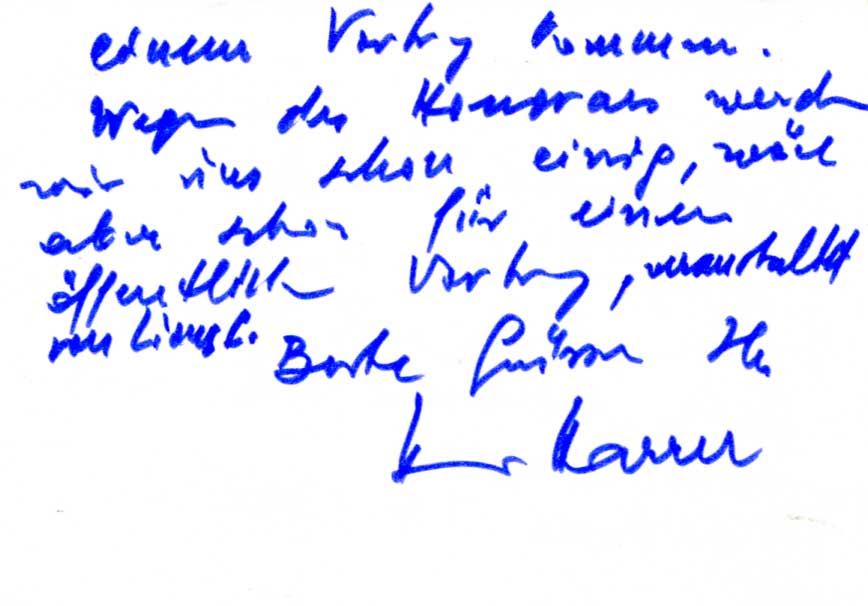 einem Vortrag kommen.
Wegen des Honorars werden
wir uns schon einig, wäre
aber schon für einen
öffentlichen Vortrag, veranstaltet
von
Beste Grüsse Ihr
Karrer